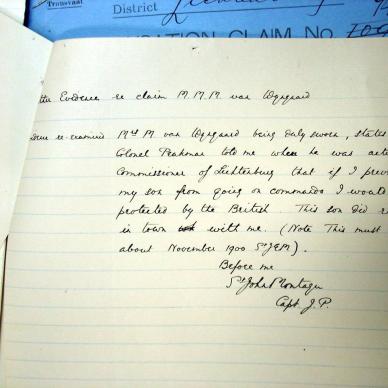 Transvaal
District
CLAIM No
Evidence re claim M.M.M. van Wyngaard
re-examined Mrs M van Wyngaard being duly sworn, states
Colonel told me when he was
Commissioner of Lichtenburg that if I
my son from going on commando I would
protected by the British. This son did
in town with me. (Note This must
about November 1900 St JM).
Before me
St John Montagu
Capt J.P.